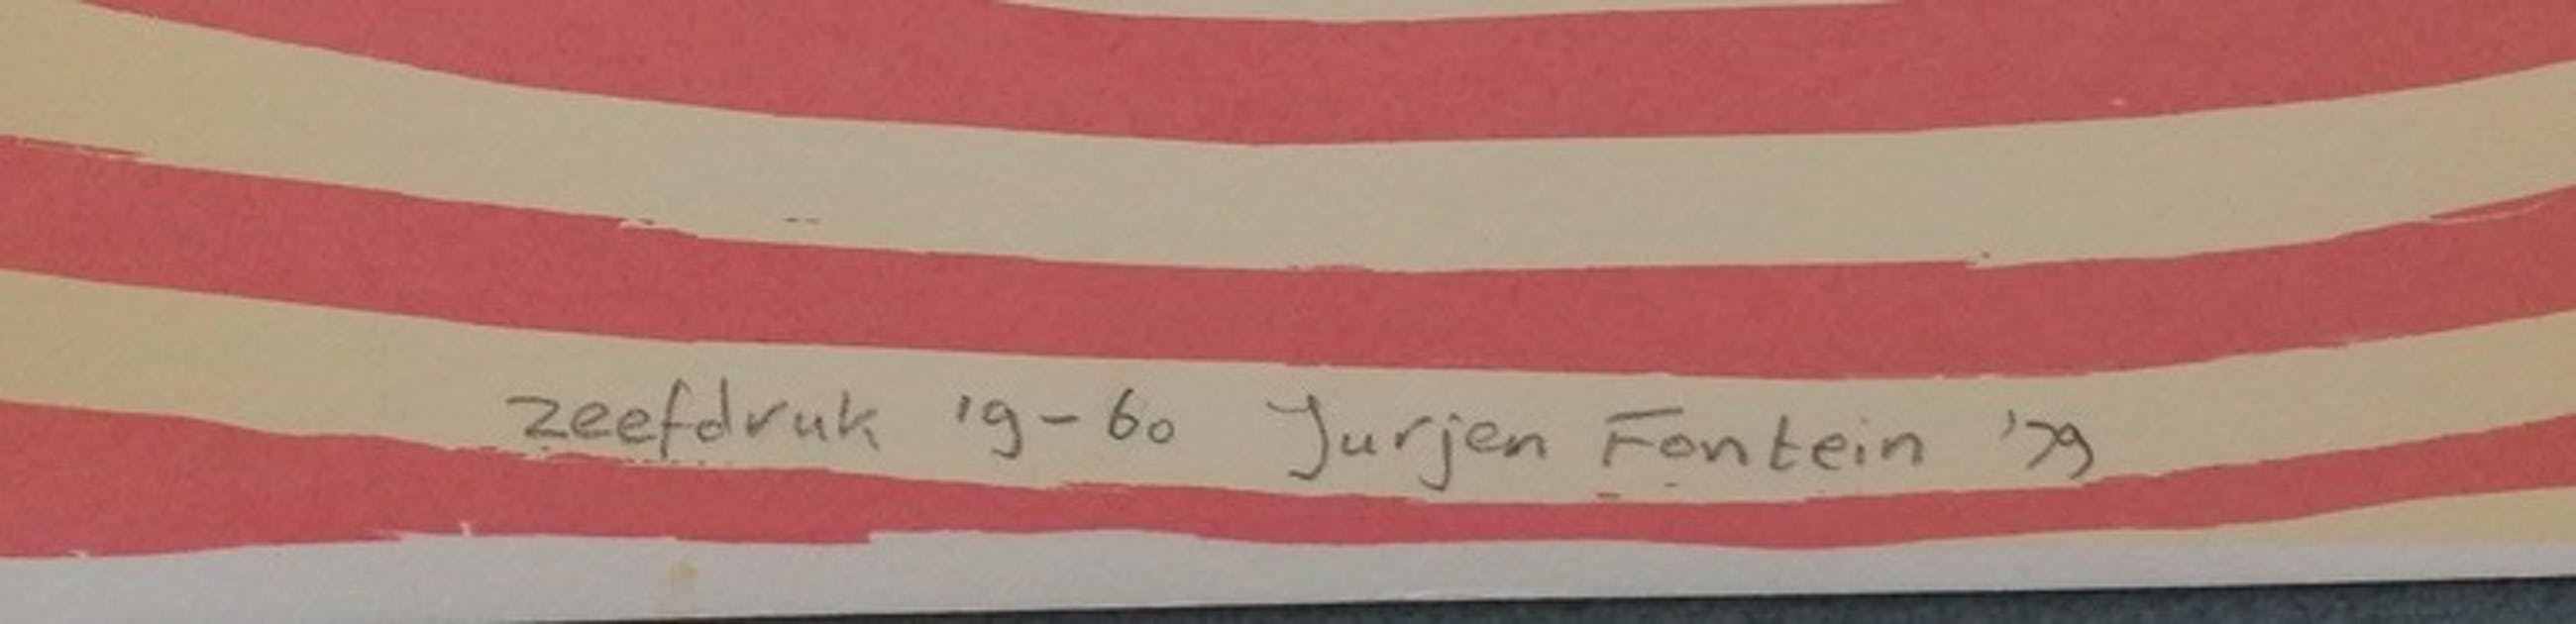 zeefdruk 19-60 Jurjen Fontein '79